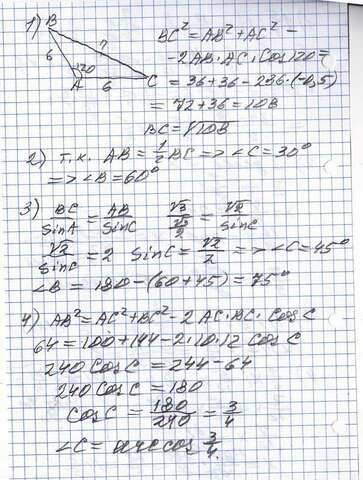 1) B
BC² = AB² + AC² −
6
?
− 2AB·AC·Cos120 =
120
A
6
C
= 36 + 36 − 2·36·(−0,5)
= 72 + 36 = 108
BC = √108
2) т.к. AB = 1/2 BC => ∠C = 30°
=> ∠B = 60°
3) BC/SinA = AB/SinC √3/(√3/2) = √2/SinC
√2/SinC = 2 SinC = √2/2 => ∠C = 45°
∠B = 180 − (60 + 45) = 75°
4) AB² = AC² + BC² − 2AC·BC·CosC
64 = 100 + 144 − 2·10·12 CosC
240 CosC = 244 − 64
240 CosC = 180
CosC = 180/240 = 3/4
∠C = arccos 3/4.